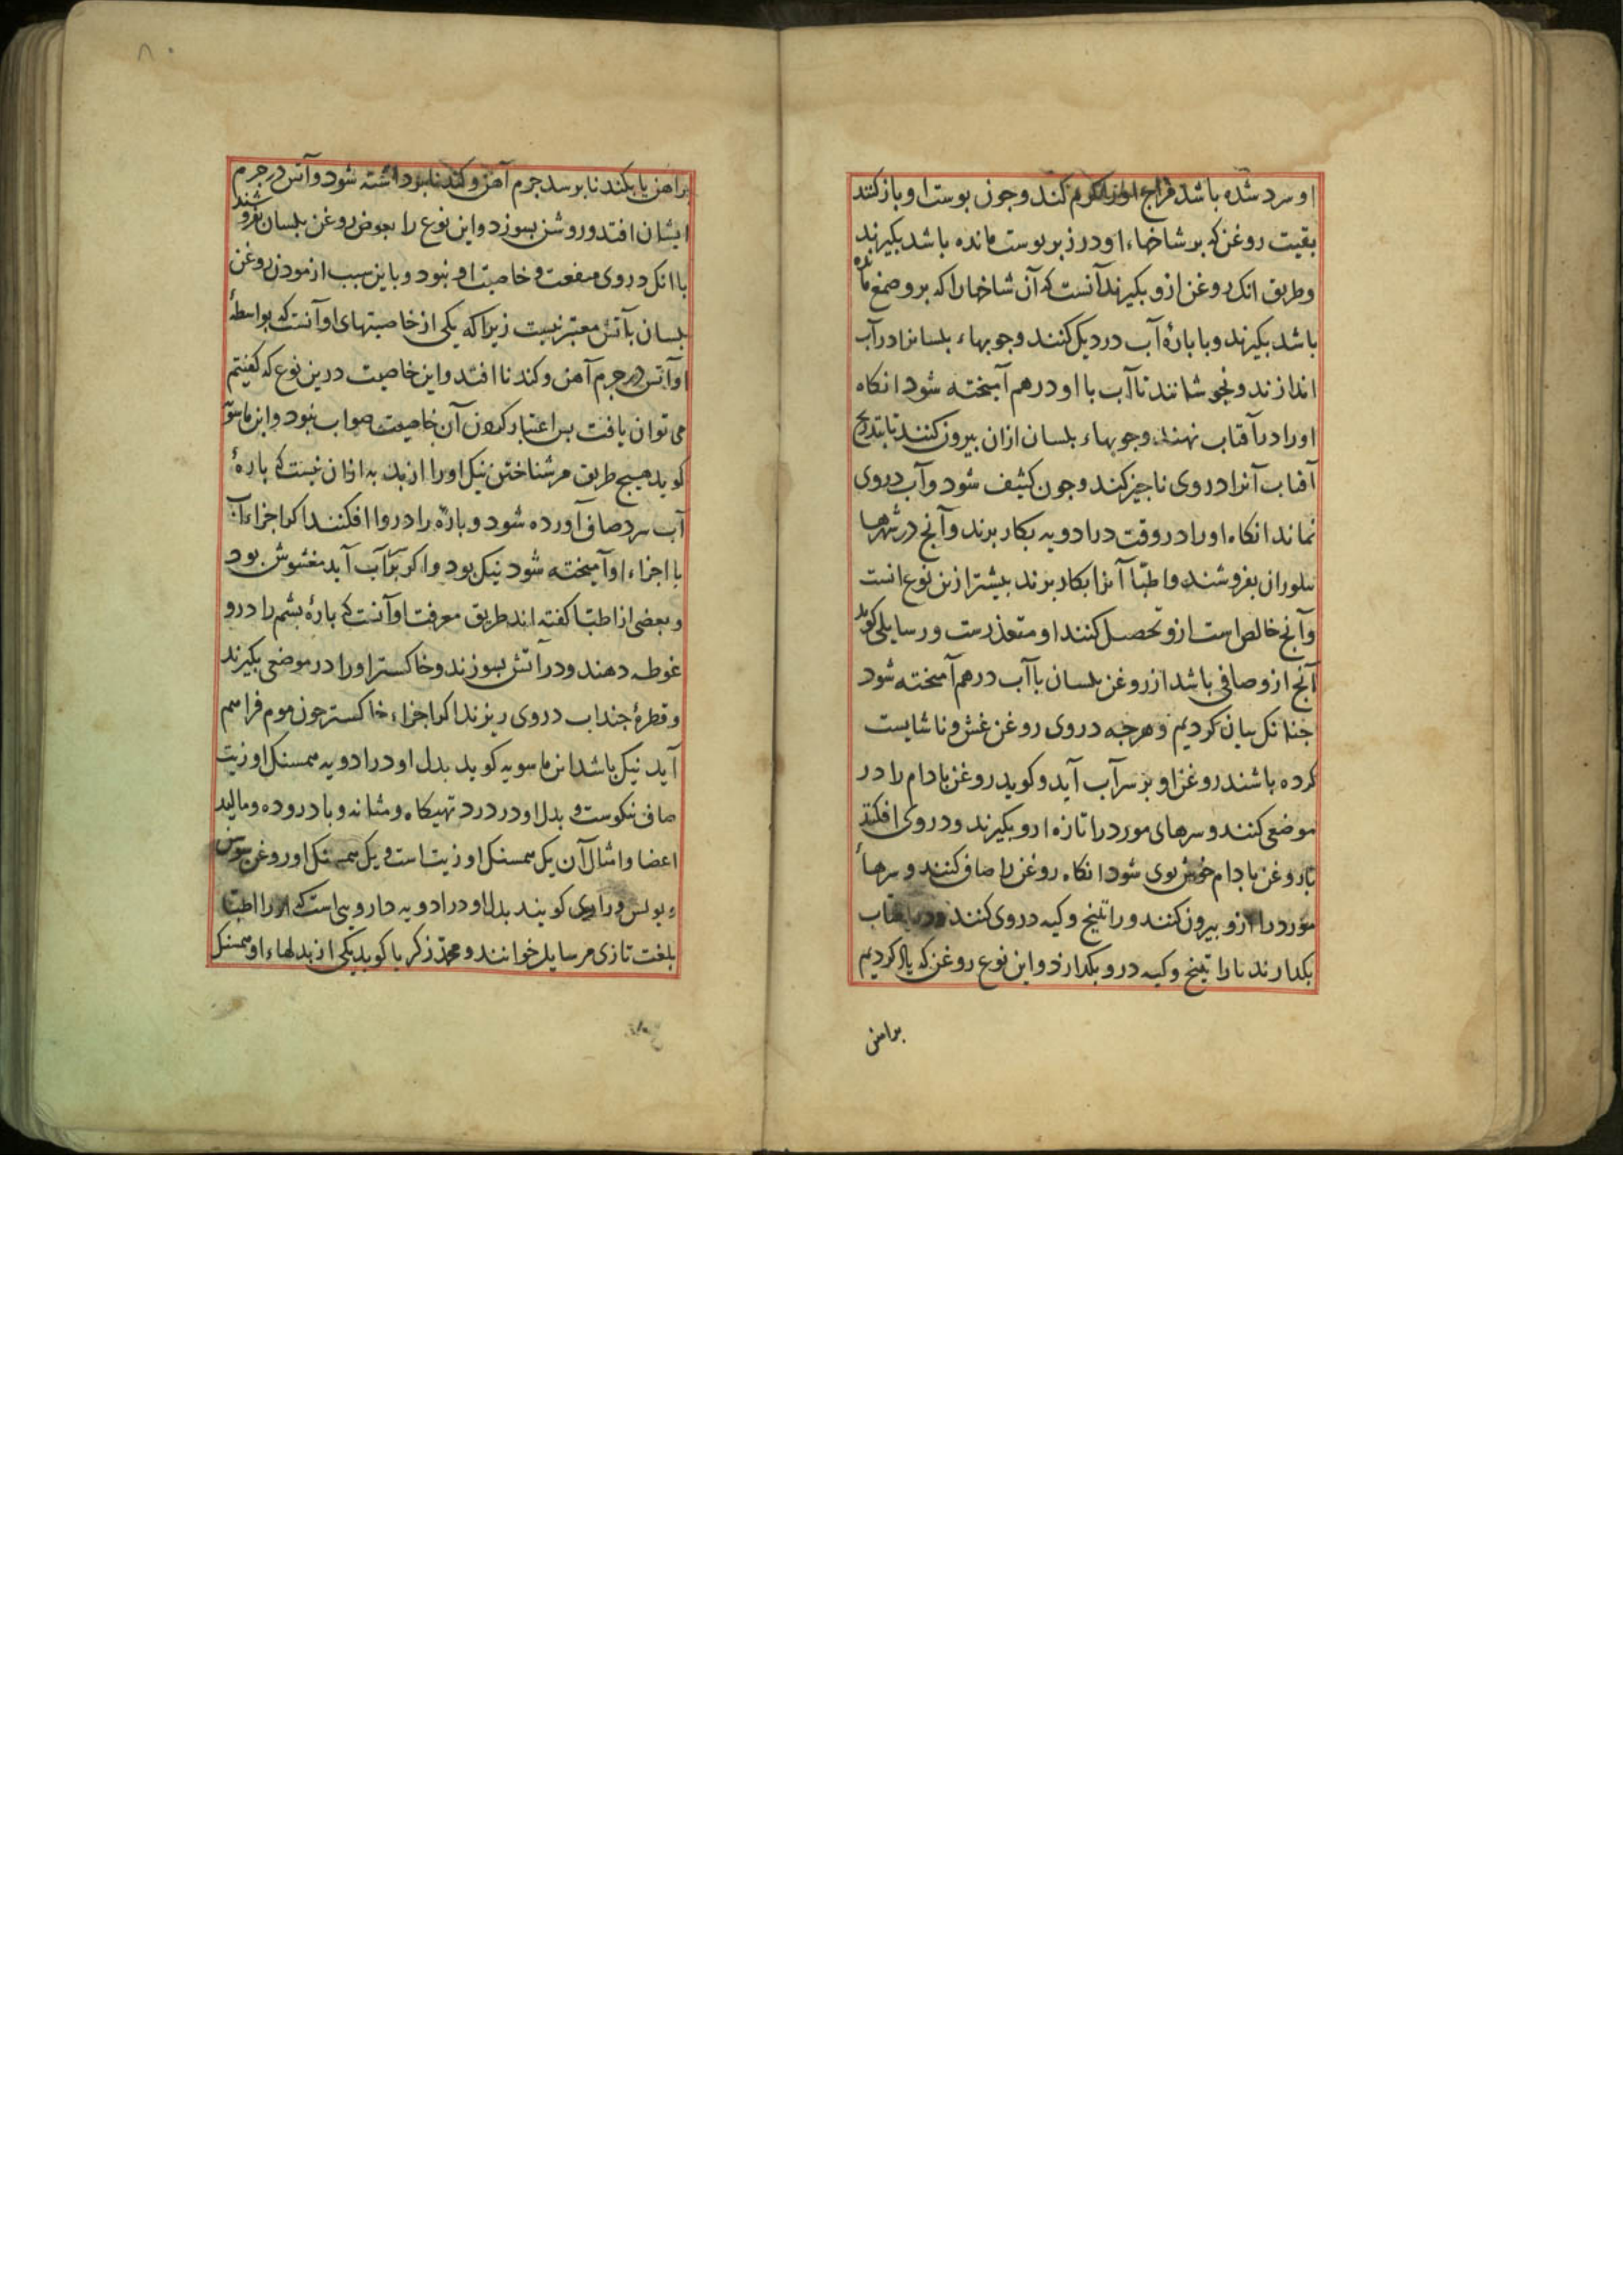 او سرد شده باشد مزاج او را گرم کند و جون بوست او باز کنند
بقیت روغن که بر شاخهاء او در زیر بوست مانده باشد بکیرند
و طریق انک روغن ازو بکیرند آنست که آن شاخها را که برو صمغ مانده
باشد بکیرند و با بارهٔ آب در دیک کنند و جوبهاء بلسانرا در آب
اندازند و بجوشانند تا آب با او در هم آمیخته شود انکاه
او را در آفتاب نهند و جوبهاء بلسان ازان بیرون کنند تا بتدریج
آفتاب آنرا در وی ناجیز کند و جون کثیف شود و آب در وی
نماند انکاه او را در وقت در ادویه بکار برند و آنج در شهرها
بلوران بفروشند و اطبّا آنرا بکار برند بیشتر ازین نوع است
و آنج خالص است ازو تحصیل کنند او متعذرست و رسایلی کوید
آنج ازو صافی باشد از روغن بلسان با آب در هم آمیخته شود
جنانک بیان کردیم و هرجه در وی روغن غش و ناشایست
کرده باشند روغن او بر سر آب آید و کوید روغن بادام را در
موضعی کنند و سرهای مورد را تازه ازو بکیرند و در وی افکنند
تا روغن بادام خوش بوی شود انکاه روغن را صاف کنند و سرهاء
مورد را ازو بیرون کنند و راتینج و کیه در وی کنند و در آفتاب
بکدارند تا راتینج و کیه درو بکدازد و این نوع روغن که یاد کردیم
برامن
برامن یا بکند تا برسد جرم آهن و کندنا برداشته شود و آتش در جرم
ایشان افتد و روشن بسوزد و این نوع را بعوض روغن بلسان بفروشند
با انک در وی منفعت و خاصیت او نبود و باین سبب ازمودن روغن
بلسان بآتش معتبر نیست زیرا که یکی از خاصیتهای او آنست که بواسطهٔ
او آتش در جرم آهن و کندنا افتد و این خاصیت درین نوع که کفتیم
می توان یافت بس اعتبار کردن آن خاصیت صواب نبود و ابن ماسویه
کوید هیچ طریق مر شناختن نیک او را از بد به ازان نیست که بارهٔ
آب سرد صاف آورده شود و باره را در وا افکنند اکر اجزاء آن
با اجزاء او آمیخته شود نیک بود و اکر بر آب آید مغشوش بود
و بعضی از اطبّا کفته اند طریق معرفت او آنست که بارهٔ بشم را درو
غوطه دهند و در آتش بسوزند و خاکستر او را در موضعی بکیرند
و قطرهٔ جند آب در وی ریزند اکر اجزاء خاکستر جون موم فراهم
آید نیک باشد ابن ماسویه کوید بدل او در ادویه همسنک او زیت
صاف نیکوست و بدل او در درد تهیکاه و مثانه و باد روده و مالیدن
اعضا و امثال آن یک همسنک او زیت است و یک همسنک او روغن سوسن
و بولس و رازی کویند بدل او در ادویه دارویی است که او را اطبّا
بلغت تازی مر سایله خوانند و محمد زکریا کوید یکی از بدلهاء او همسنک